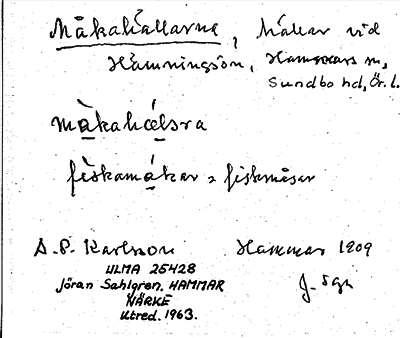 Måkahällarna, hällar vid
Hämningsön, Hammars sn,
Sundbo hd, Ör. l.
måkahælsra
fiskamåkar = fiskmåsar
A. P. Karlsson Hammar 1909
ULMA 25428 J. Sgn
Jöran Sahlgren. HAMMAR
NÄRKE
Utred. 1963.